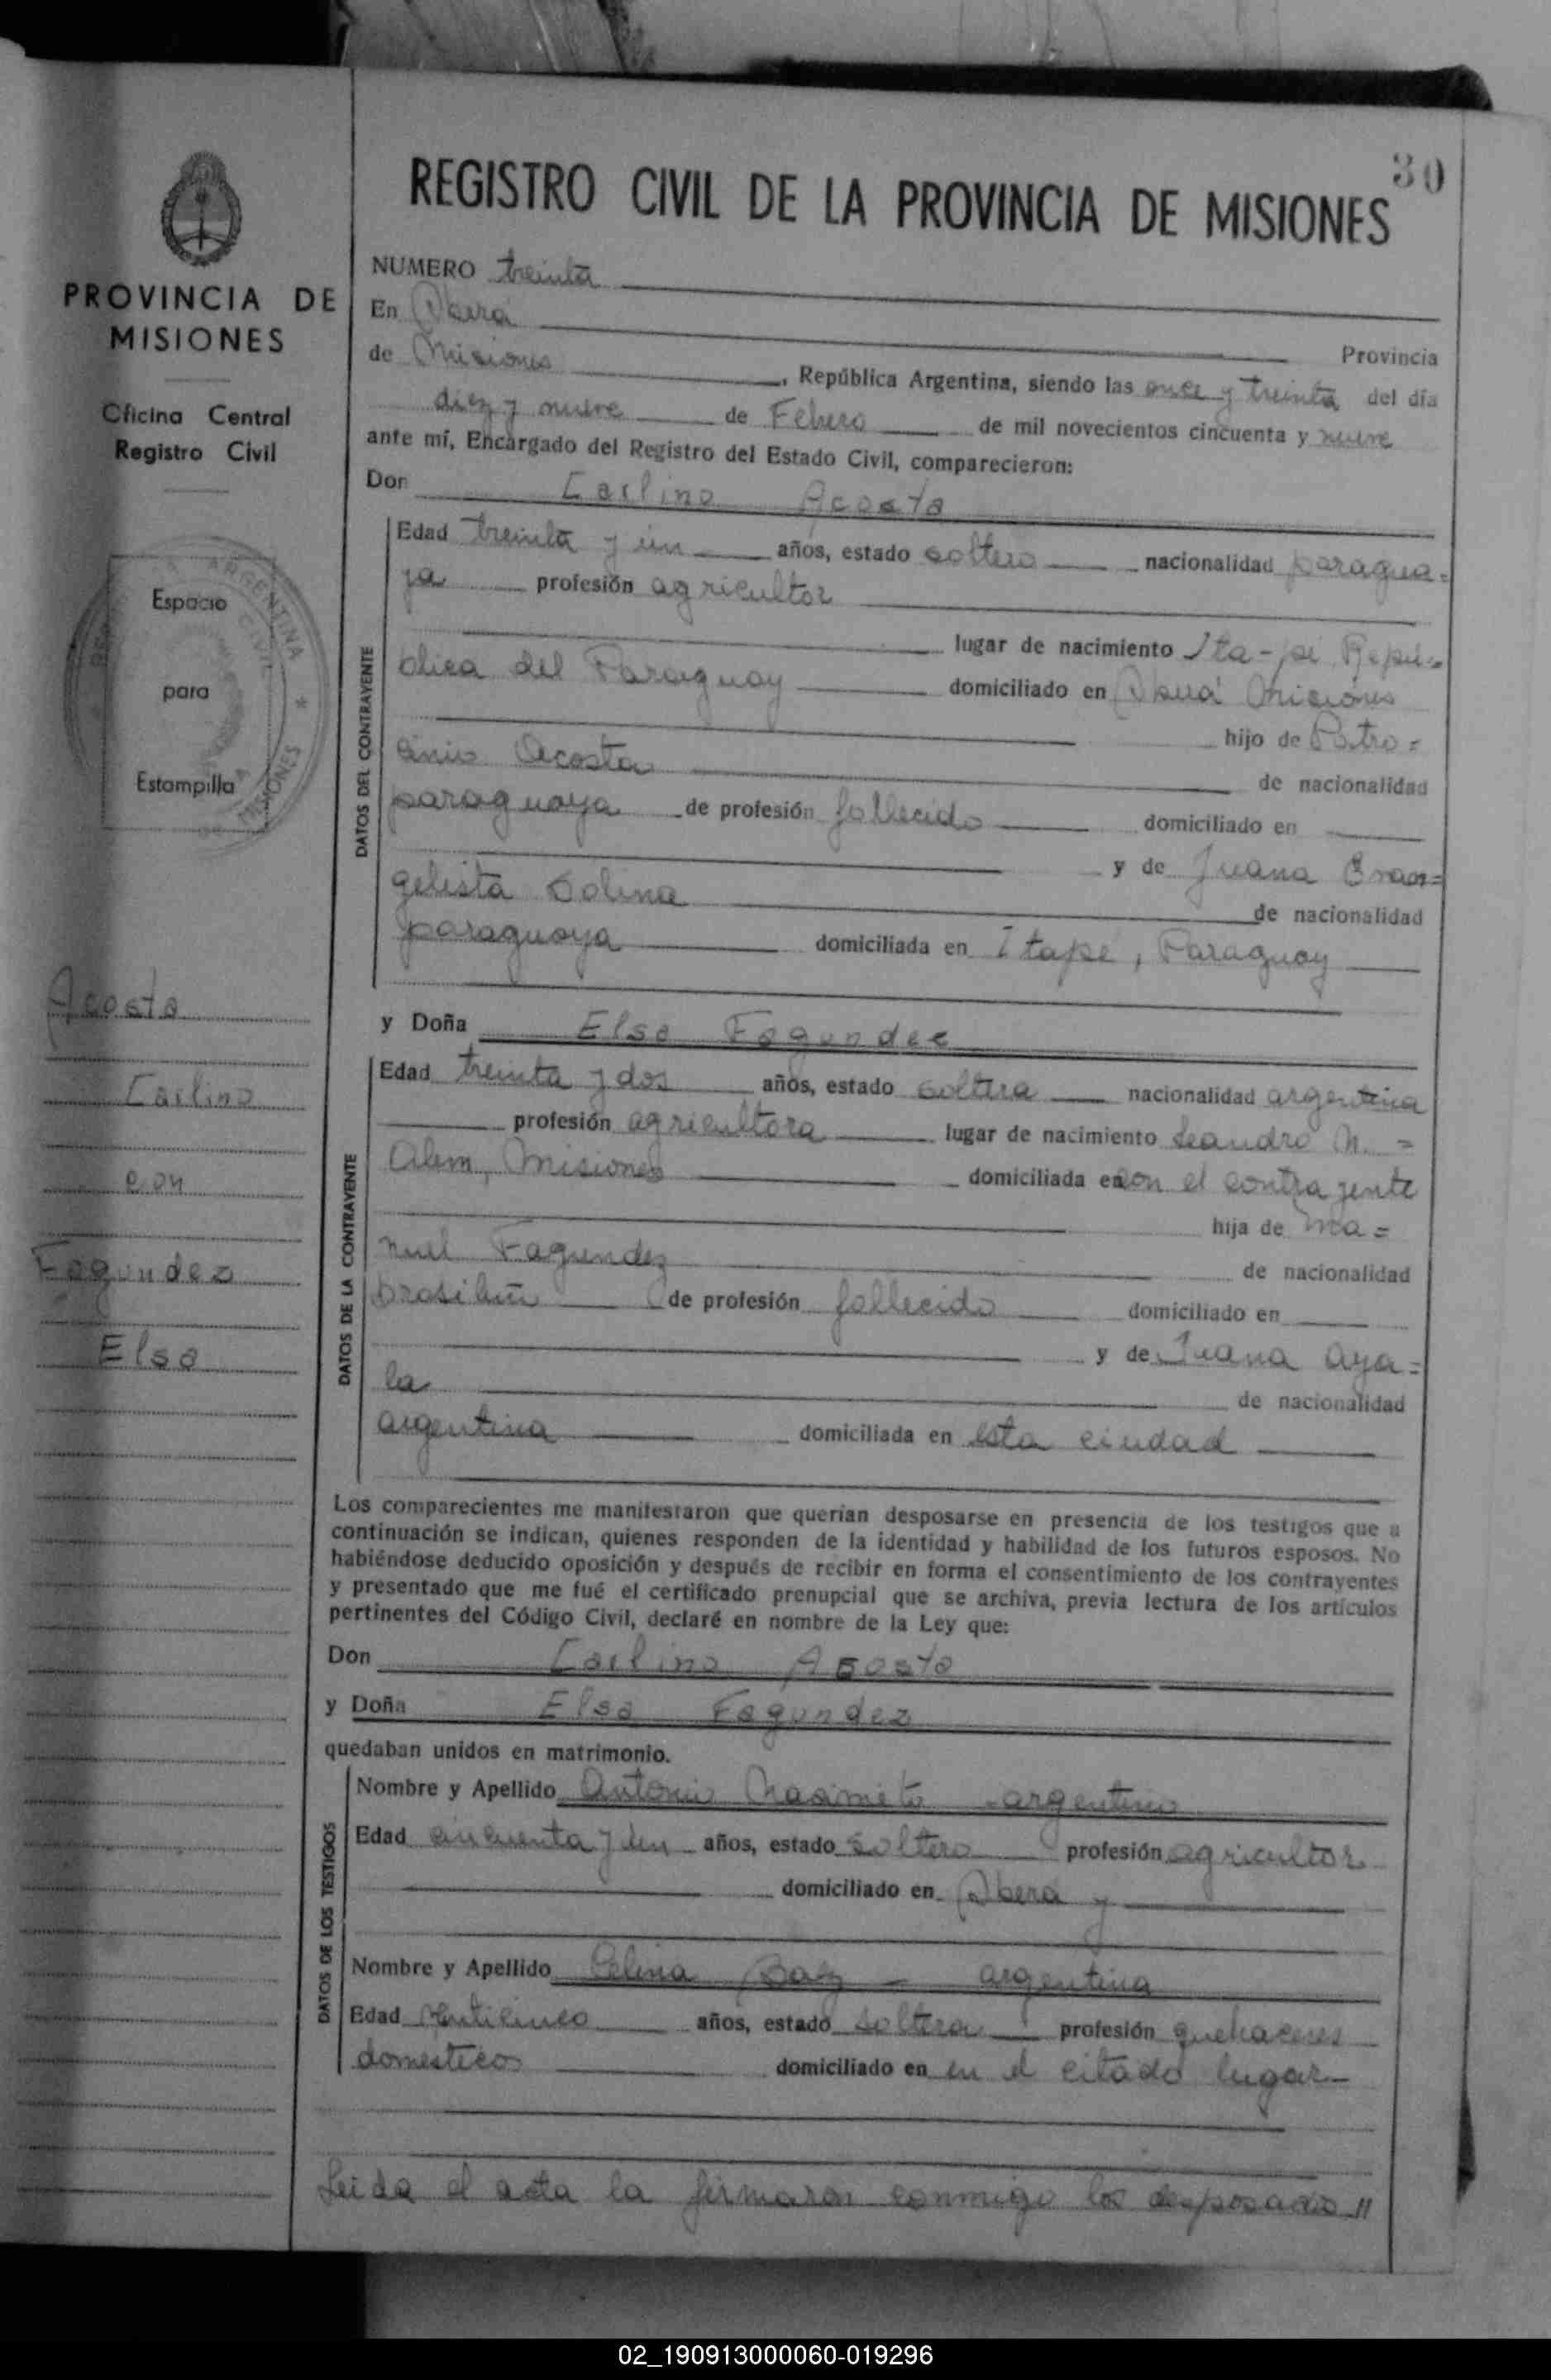 30
REGISTRO CIVIL DE LA PROVINCIA DE MISIONES
PROVINCIA DE
MISIONES
Oficina Central
Registro Civil
Espacio
para
Estampilla
ARGENTINA
CIVIL
MISIONES
Acosta
Carlino
con
Fagundez
Elsa
NUMERO treinta
En Oberá
Provincia
de Misiones, República Argentina, siendo las once y treinta del día
diez y nueve de Febrero de mil novecientos cincuenta y nueve
ante mí, Encargado del Registro del Estado Civil, comparecieron:
Don Carlino Acosta
DATOS DEL CONTRAYENTE
Edad treinta y un años, estado soltero nacionalidad paragua=
ya profesión agricultor
lugar de nacimiento Ita-pé Repú=
blica del Paraguay domiciliado en Oberá Misiones
hijo de Patro=
cinio Acosta
de nacionalidad
paraguaya de profesión fallecido domiciliado en
y de Juana Evan=
gelista Colina
de nacionalidad
paraguaya domiciliada en Itape, Paraguay
y Doña Elsa Fagundez
DATOS DE LA CONTRAYENTE
Edad treinta y dos años, estado soltera nacionalidad argentina
profesión agricultora lugar de nacimiento Leandro N. =
Alem, Misiones domiciliada en con el contrayente
hija de Ma=
nuel Fagundez
de nacionalidad
brasileña de profesión fallecido domiciliado en
y de Juana Aya=
la
de nacionalidad
argentina domiciliada en esta ciudad
Los comparecientes me manifestaron que querían desposarse en presencia de los testigos que a
continuación se indican, quienes responden de la identidad y habilidad de los futuros esposos. No
habiéndose deducido oposición y después de recibir en forma el consentimiento de los contrayentes
y presentado que me fué el certificado prenupcial que se archiva, previa lectura de los artículos
pertinentes del Código Civil, declaré en nombre de la Ley que:
Don Carlino Acosta
y Doña Elsa Fagundez
quedaban unidos en matrimonio.
DATOS DE LOS TESTIGOS
Nombre y Apellido Antonio argentino
Edad cincuenta y un años, estado soltero profesión agricultor
domiciliado en Oberá y
Nombre y Apellido Celina Baez - argentina
Edad veinticinco años, estado soltera profesión quehaceres
domesticos domiciliado en en el citado lugar-
Leida el acta la firmaron conmigo los desposados //
02_190913000060-019296